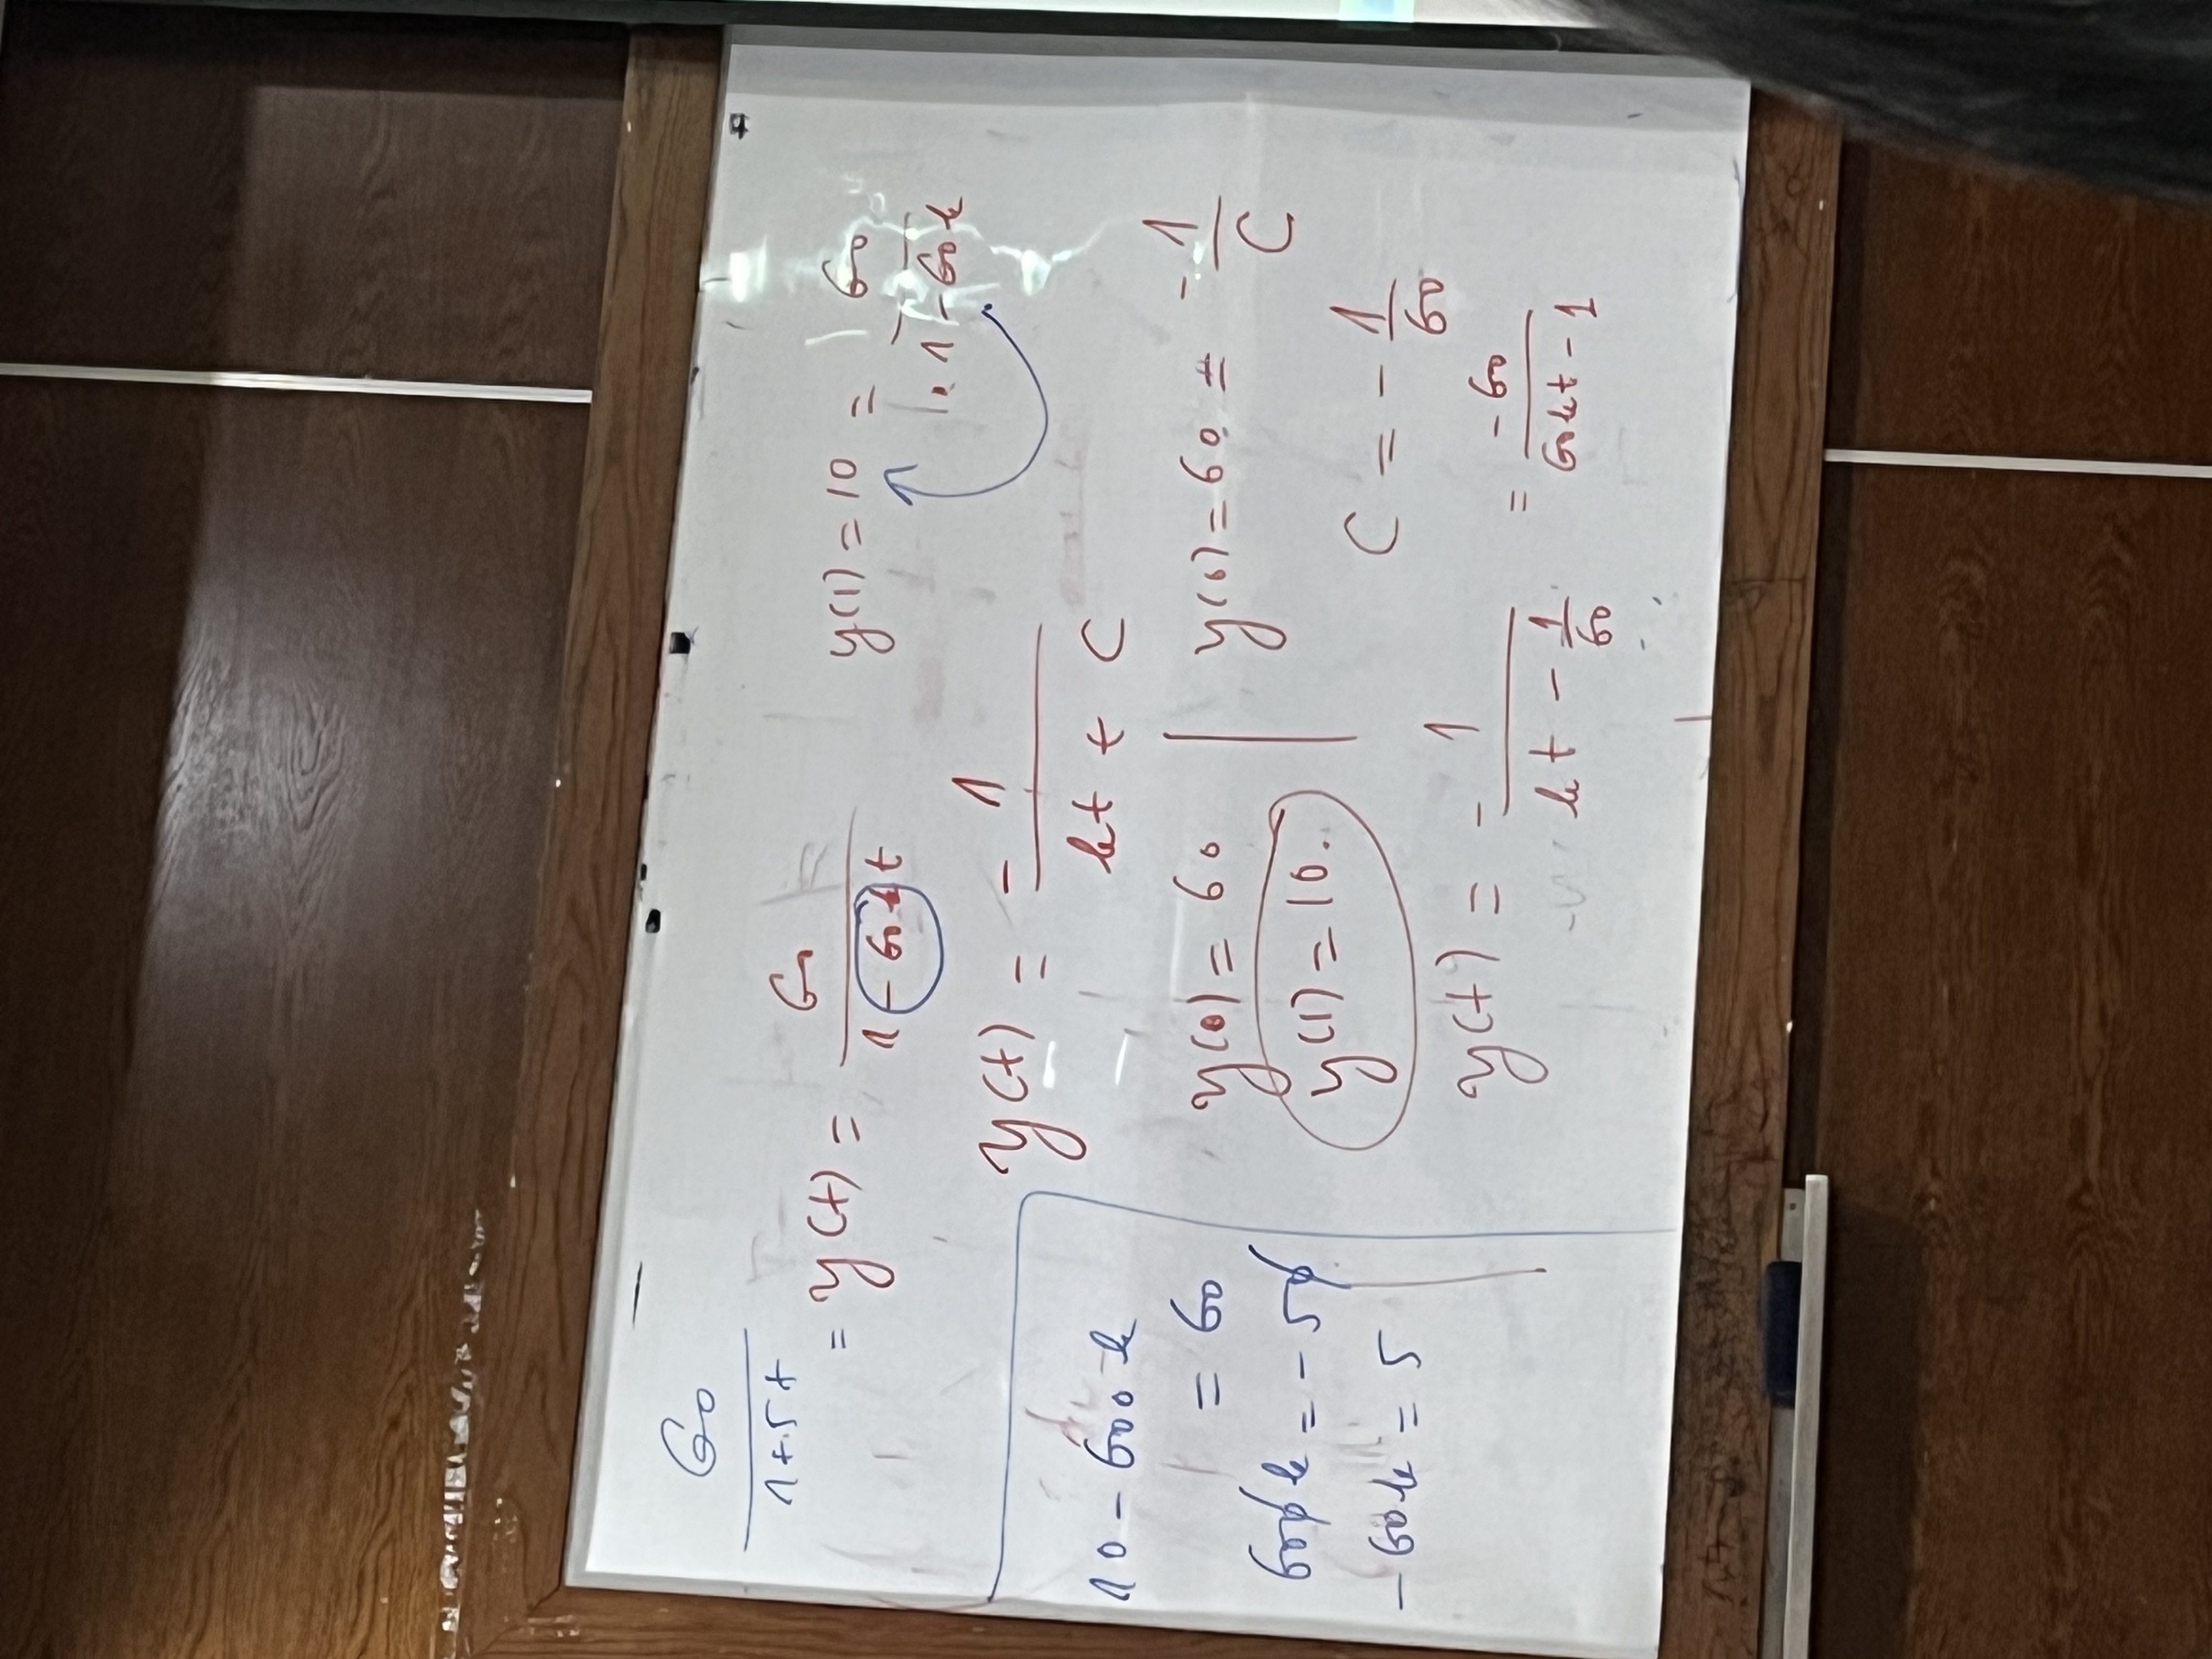 60
1+5t
= y(t) = 60
1 - 60k t
y(1) = 10 = 60
1 - 60k
y(t) = - 1
kt + C
10 - 600k
= 60
600k = - 50
- 60k = 5
y(0) = 60
y(1) = 10.
y(0) = 60 = - 1
C
C = - 1
60
y(t) = - 1
kt - 1
60
= -60
60kt - 1